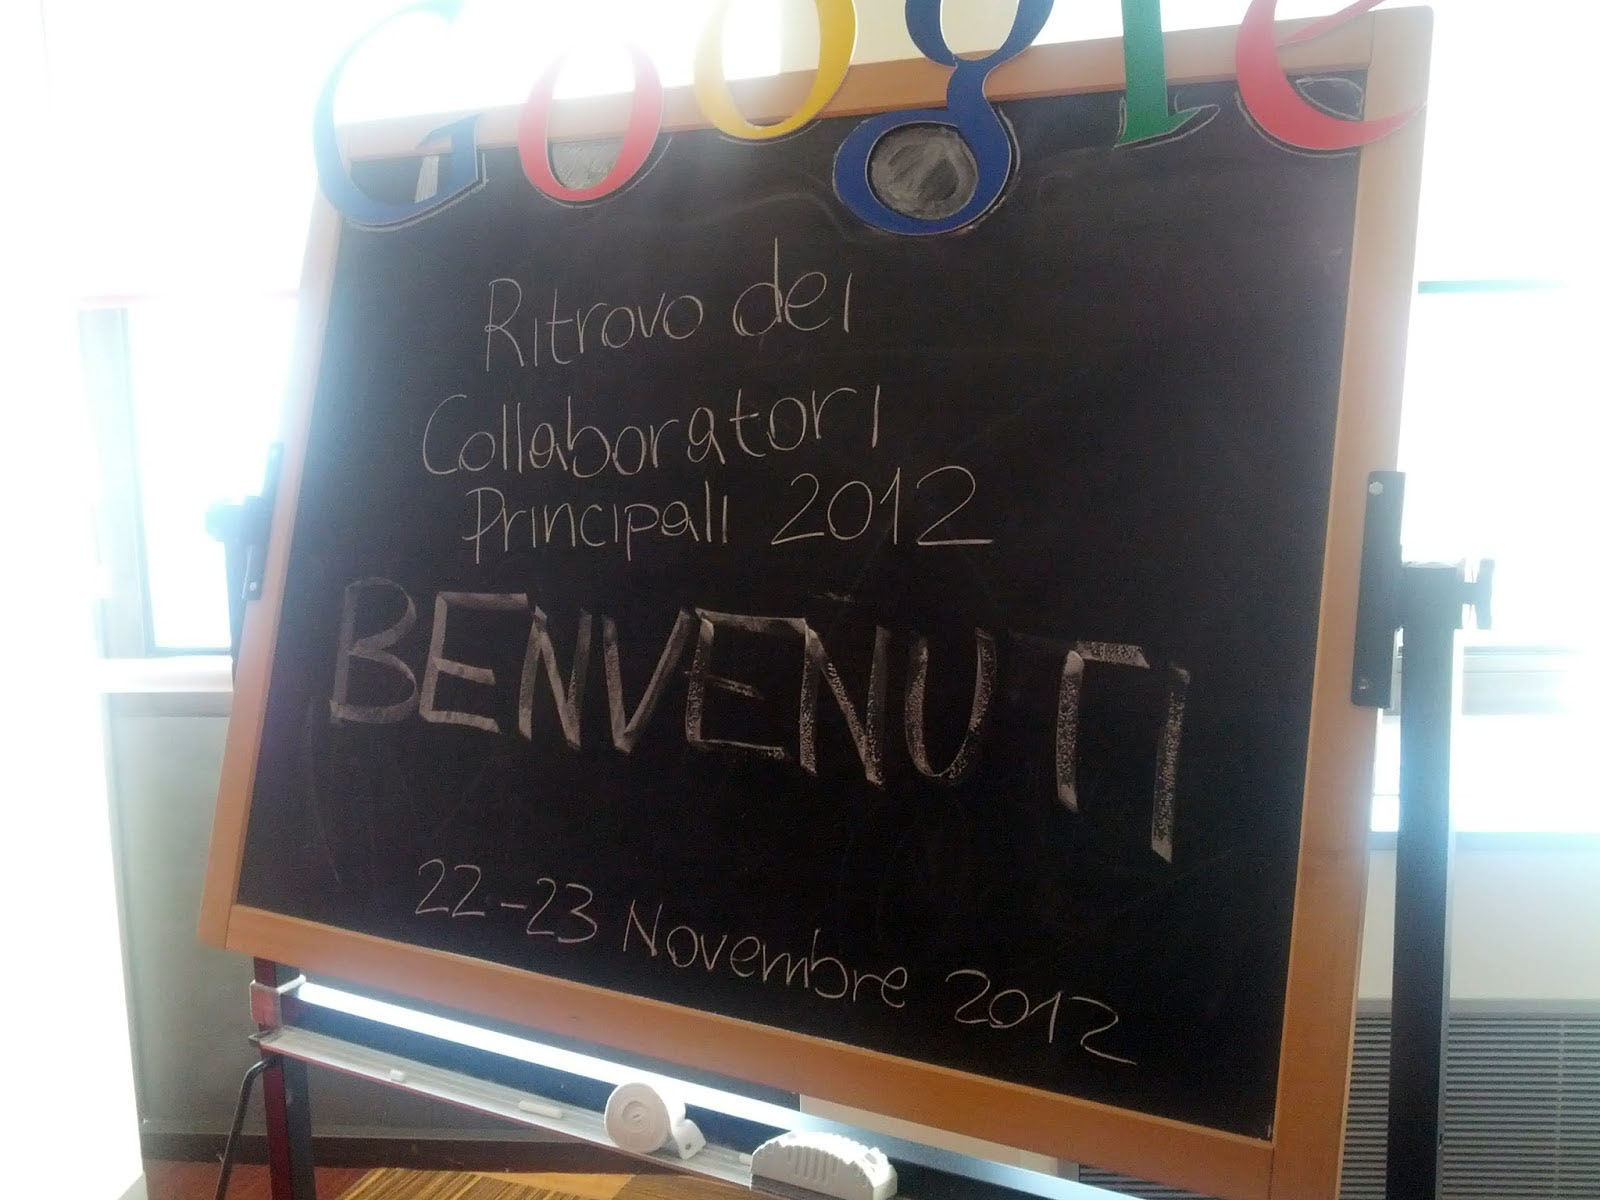 Google
Ritrovo dei
Collaboratori
Principali 2012
BENVENUTI
22-23 Novembre 2012